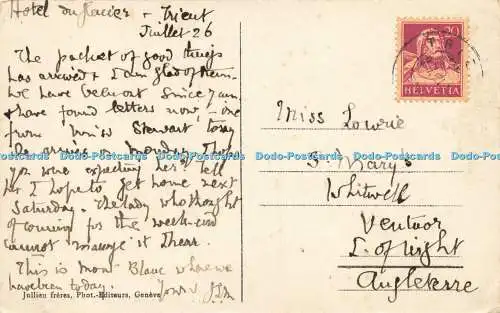 Hotel du glacier - Trient
Juillet 26
The packet of good things
has arrived & I am glad of them
We have been out since 7 am
& have found letters now, - one
from Miss Stewart today
She arrives on Monday,
you were expecting her? Tell
her I hope to get home next
Saturday. The lady who thought
of coming for the week-end
cannot manage it I hear.
This is Mont Blanc where we
have been today.
Yours
Miss Lowrie
S. Mary's
Whitwell
Ventnor
I. of Wight
Angleterre
20
HELVETIA
Jullien frères, Phot.-Editeurs, Genève
Dodo-Postcards Dodo-Postcards Dodo-Postcards Dodo-Postcards Dodo-Postcards